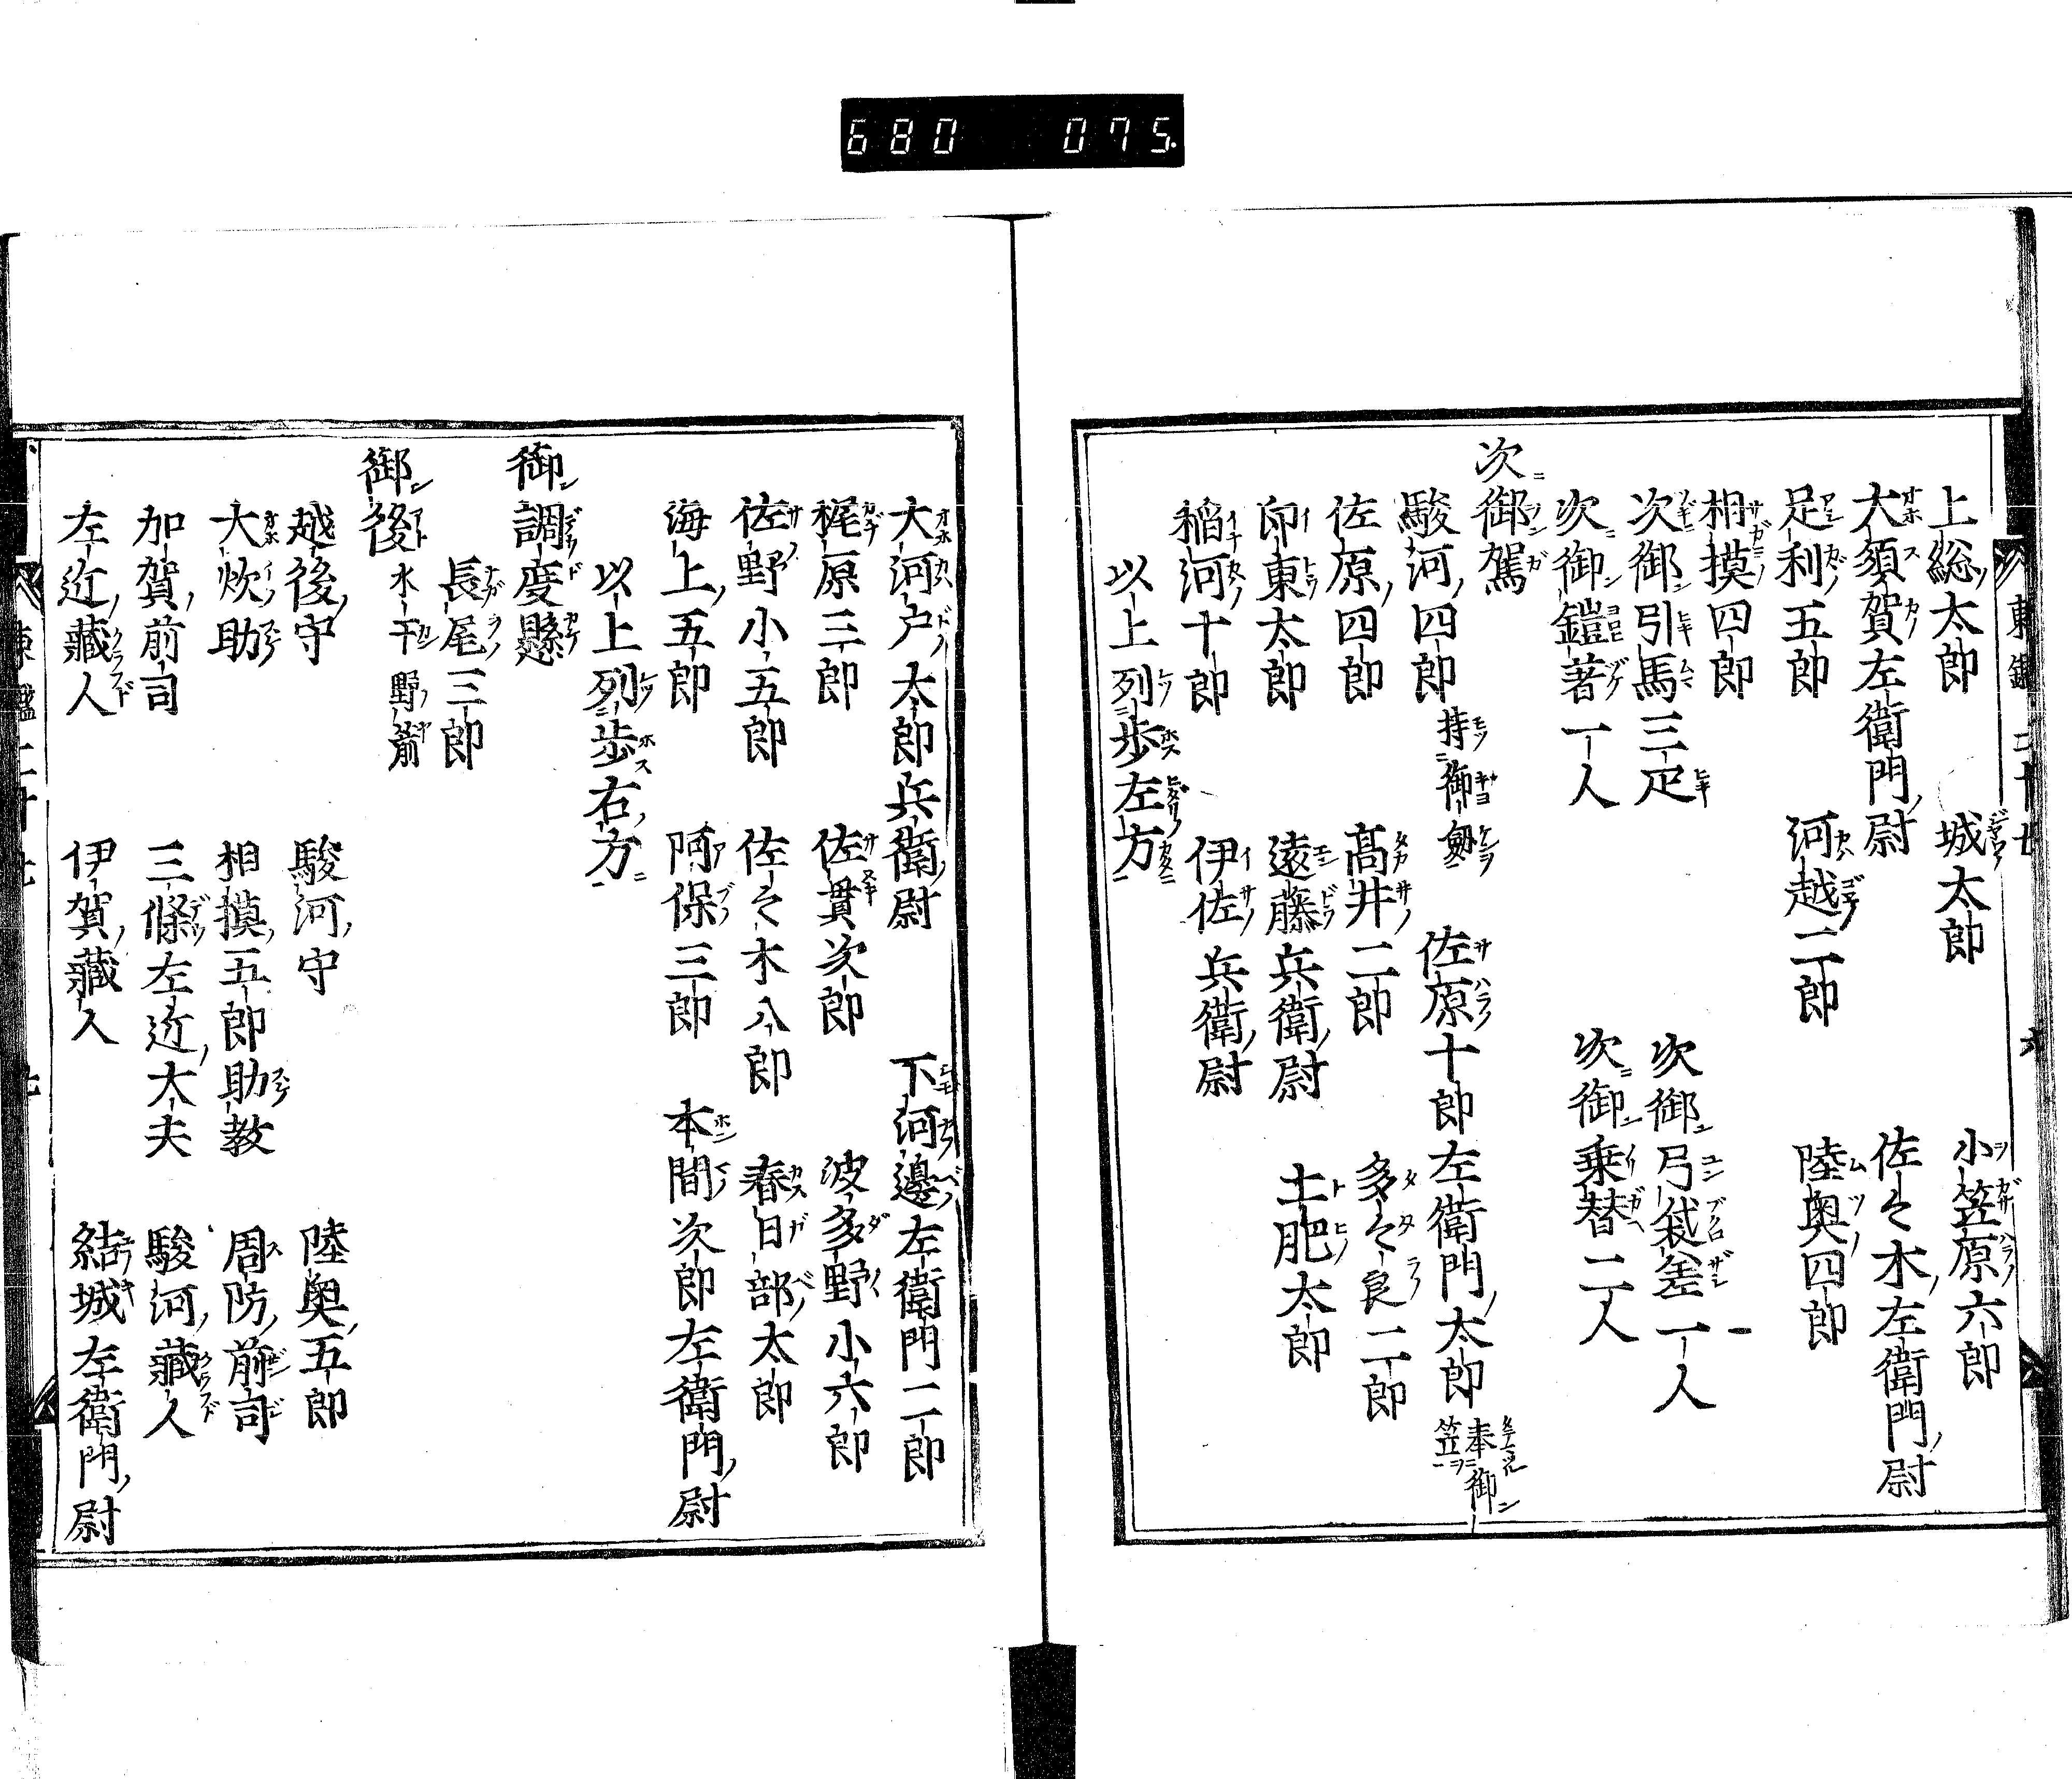 680 075.
上総太郎 城太郎 小笠原六郎
大須賀左衛門尉 佐々木左衛門尉
足利五郎 河越二郎 陸奥四郎
相摸四郎
次御引馬三疋 次御弓袋差一人
次御鎧著一人 次御乗替二人
次御駕
駿河四郎 持御劔 佐原十郎左衛門太郎 奉御笠
佐原四郎 髙井二郎 多々良二郎
印東太郎 遠藤兵衛尉 土肥太郎
稲河十郎 伊佐兵衛尉
以上列歩左方
大河戸太郎兵衛尉 下河邊左衛門二郎
梶原三郎 佐貫次郎 波多野小六郎
佐野小五郎 佐々木八郎 春日部太郎
海上五郎 阿保三郎 本間次郎左衛門尉
以上列歩右方
御調度懸
長尾三郎
御後 水干野箭
越後守 駿河守 陸奥五郎
大炊助 相摸五郎助教 周防前司
加賀前司 三條左近大夫 駿河藏人
左近藏人 伊賀藏人 結城左衛門尉